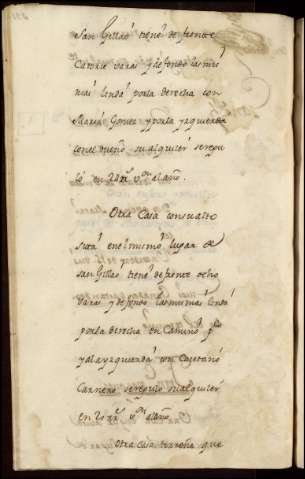 San Gillao tiene de frente
Catorce varas y de fondo las mis
mas linda por la derecha con
Maria Gomez y por la yzquierda
con el dueño su alquiler se regu
lo en 24 rrs vn al año.
Otra Casa con su alto
sita en el mismo lugar de
San Gillao tiene de frente ocho
varas y de fondo las mismas linda
por la derecha en Camino
y a la yzquierda con Cayetano
Carnero se regulo su alquiler
en 20 rrs vn al año.
Otra Casa terreña que